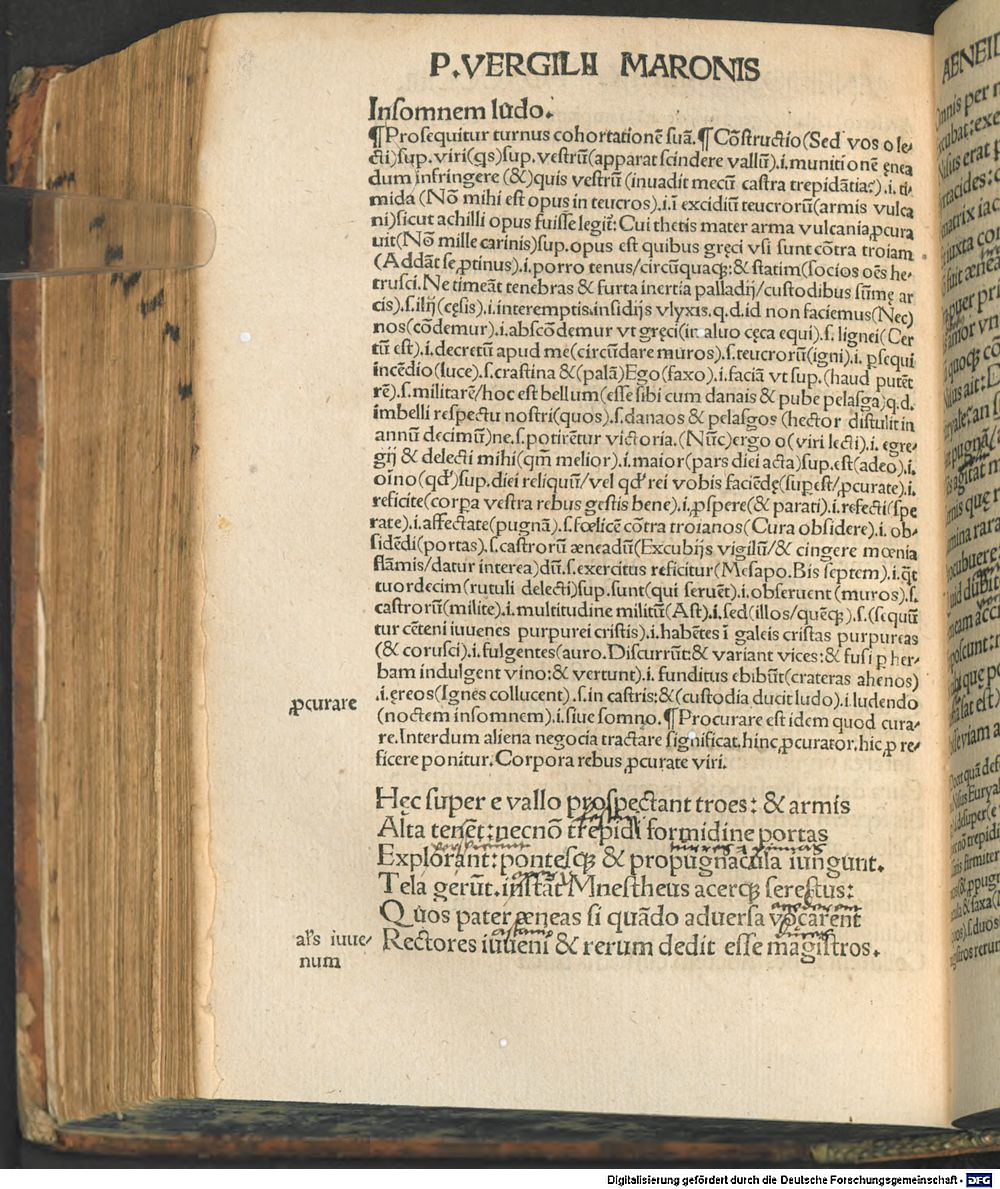 P.VERGILII MARONIS
Insomnem ludo.
¶Prosequitur turnus cohortationē suā.¶Cōstructio(Sed vos o le-
cti)sup.viri(qs)sup.vestrū(apparat scindere vallū).i.munitionē ęnea
dum infringere(&)quis vestrū(inuadit mecū castra trepidātia?).i.ti
mida(Nō mihi est opus in teucros).i.ī excidiū teucrorū(armis vulca
ni)sicut achilli opus fuisse legit᷑:Cui thetis mater arma vulcania ꝓcura
uit(Nō mille carinis)sup.opus est quibus gręci vsi sunt cōtra troiam
(Addāt se ꝓtinus).i.porro tenus/circūquaqꝫ:& statim(socios oēs he-
trusci.Ne timeāt tenebras & furta inertia palladij/custodibus sūmę ar
cis).s.ilij(cęsis).i.interemptis.insidijs vlyxis.q.d.id non faciemus(Nec)
nos(cōdemur).i.abscōdemur vt gręci(in aluo cęca equi).s.lignei(Cer
tū est).i.decretū apud me(circūdare muros).s.teucrorū(igni).i.ꝑsequi
incēdio(luce).s.crastina &(palā)Ego(faxo).i.faciā vt sup.(haud putēt
rē).s.militarē/hoc est bellum(esse sibi cum danais & pube pelasga)q.d.
imbelli respectu nostri(quos).s.danaos & pelasgos(hector distulit in
annū decimū)ne.s.potirētur victoria.(Nūc)ergo o(viri lecti).i.egre-
gij & delecti mihi(qm̄ melior).i.maior(pars diei acta)sup.est(adeo).i.
oīno(qd̕)sup.diei reliquū/vel qd̕ rei vobis faciēdę(supest/ꝓcurate).i.
reficite(corpa vestra rebus gestis bene).i.ꝓspere(& parati).i.refecti(spe
rate).i.affectate(pugnā).s.fœlicē cōtra troianos(Cura obsidere).i.ob-
sidēdi(portas).s.castrorū æneadū(Excubijs vigilū/& cingere mœnia
flāmis/datur interea)dū.s.exercitus reficitur(Mesapo.Bis septem).i.q̄t
tuordecim(rutuli delecti)sup.sunt(qui seruēt).i.obseruent(muros).s.
castrorū(milite).i.multitudine militū(Ast).i.sed(illos/quēqꝫ).s.(sequū
tur cēteni iuuenes purpurei cristis).i.habētes ī galeis cristas purpureas
(& corusci).i.fulgentes(auro.Discurrūt:& variant vices:& fusi ꝑ her-
bam indulgent vino:& vertunt).i.funditus ebibūt(crateras ahenos)
.i.ęreos(Ignes collucent).s.in castris:&(custodia ducit ludo).i.ludendo
(noctem insomnem).i.siue somno.¶Procurare est idem quod cura-
re.Interdum aliena negocia tractare significat.hinc ꝓcurator.hic ꝓ re-
ficere ponitur.Corpora rebus ꝓcurate viri.
ꝓcurare
Hęc super e vallo prospectant troes: & armis
Alta tenēt:necnō trepidi formidine portas
Explorant:pontesqꝫ & propugnacula iungunt.
Tela gerūt.instāt Mnestheus acerqꝫ serestus:
Quos pater æneas si quādo aduersa vocarent
Rectores iuueni & rerum dedit esse magistros.
al's iuue-
num
AENEID
Digitalisierung gefördert durch die Deutsche Forschungsgemeinschaft - DFG